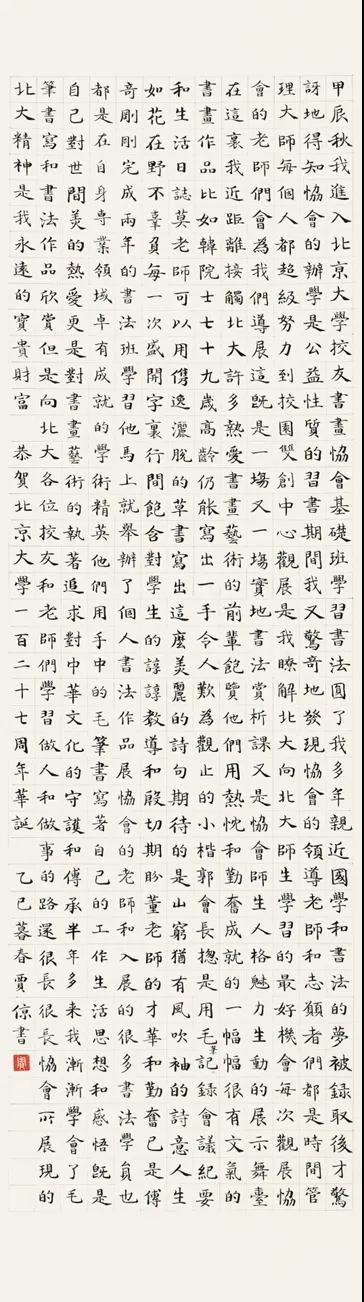 甲辰秋我進入北京大學校友書畫協會基礎班學習書法圓了我多年親近國學和書法的夢被録取後才驚
訝地得知協會的辦學是公益性質的習書期間我又驚奇地發現協會的領導老師和志願者們都是時間管
理大師每個人都超級努力到校園雙創中心觀展是我瞭解北大向北大師生學習的最好機會每次觀展協
會的老師們會為我們導展這既是一場又一場實地書法賞析課又是協會師生人格魅力生動的展示舞臺
在這裏我近距離接觸北大許多熱愛書畫藝術的前輩飽覽他們用熱忱和勤奮成就的一幅幅很有文氣的
書畫作品比如韓院士七十九歲高齡仍能寫出一手令人歎為觀止的小楷郭會長揔是用毛筆記録會議紀要
和生活日誌莫老師可以用儁逸灑脫的草書寫出這麽美麗的詩句期待的是山窮猶有風吹袖的詩意人生
如花在野不辜負每一次盛開字裏行間飽含對學生的諄諄教導和殷切期盼董老師的才華和勤奮已是傳
奇剛剛完成兩年的書法班學習他馬上就舉辦了個人書法作品展協會的老師和入展的很多書法學員也
都是在自身專業領域卓有成就的學術精英他們用手中的毛筆書寫著自己的工作生活思想和感悟既是
自己對世間美的熱愛更是對書畫藝術的執著追求對中華文化的守護和傳承半年多來我漸漸學會了毛
筆書寫和書法作品欣賞但是向北大各位校友和老師們學習做人和做事的路還很長很長協會所展現的
北大精神是我永遠的寶貴財富 恭賀北京大學一百二十七周年華誕 乙巳暮春賈倞書